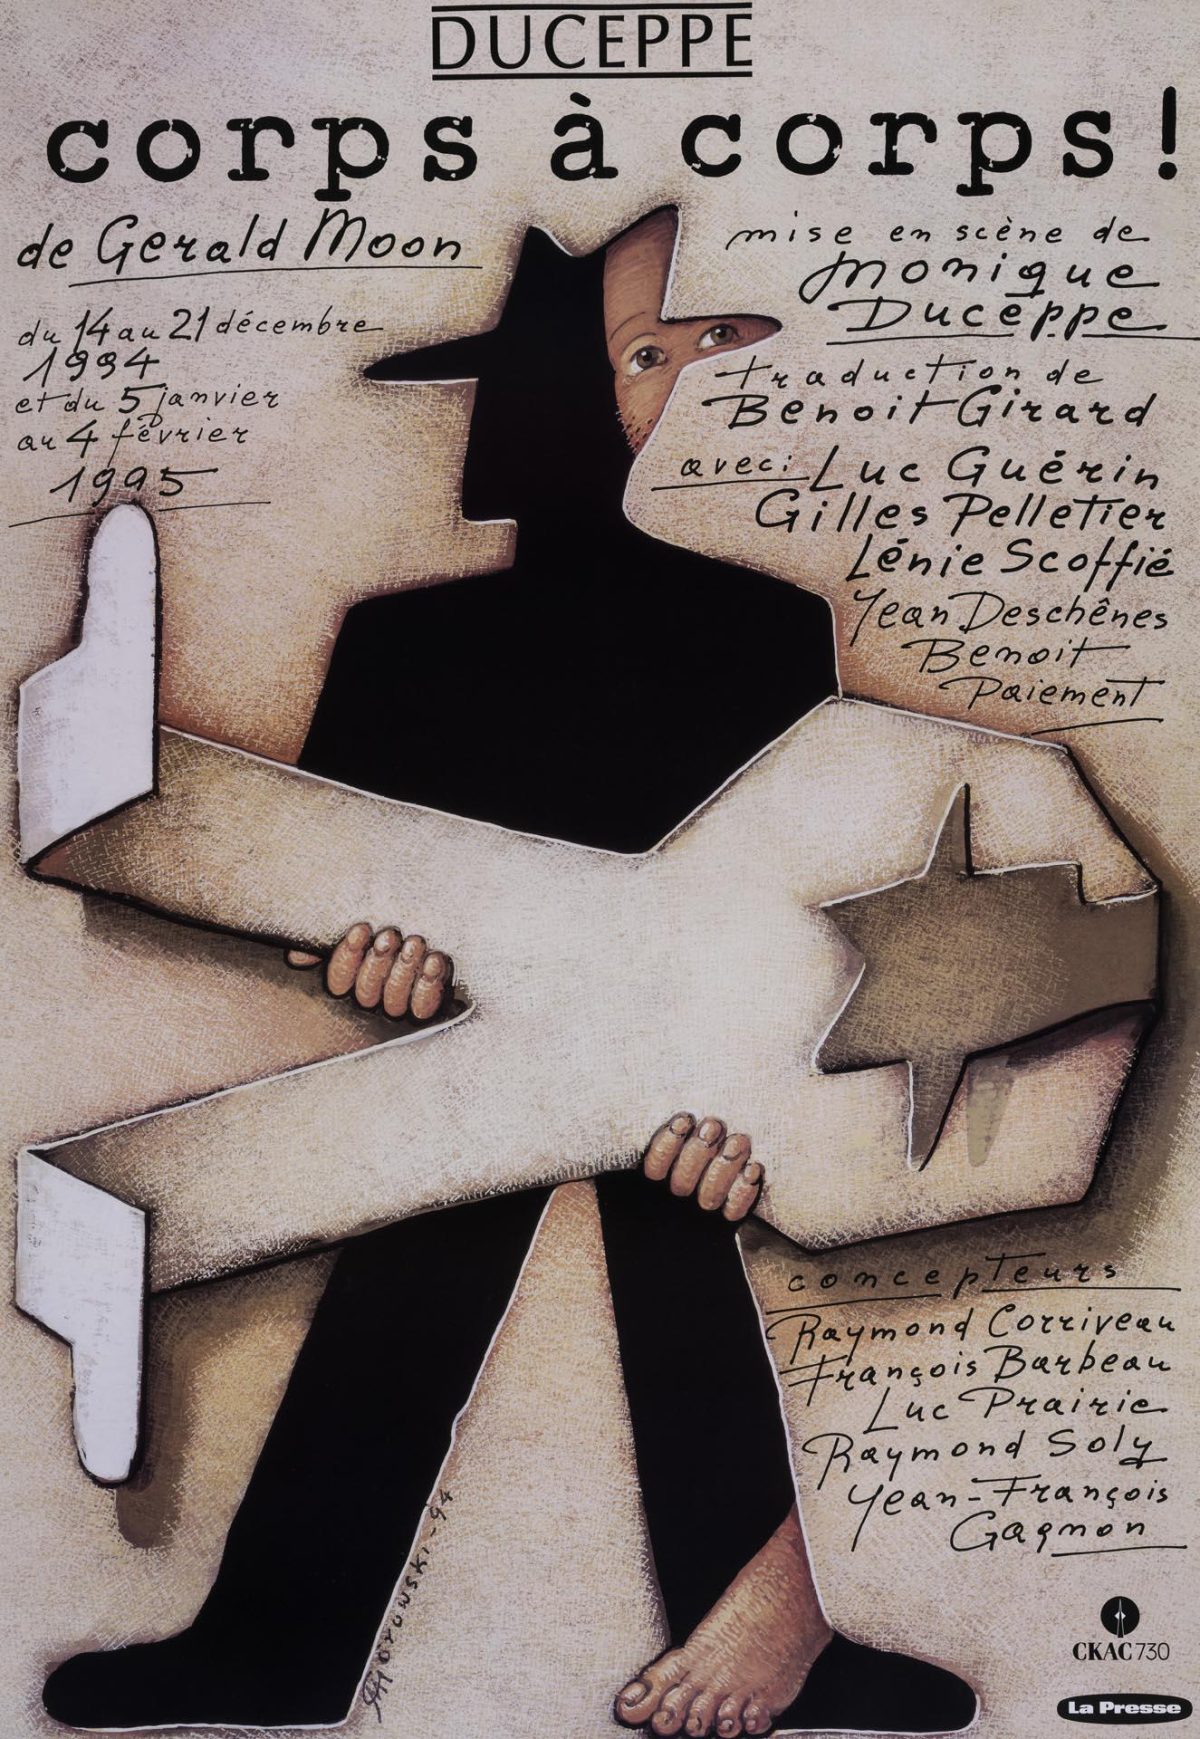 DUCEPPE
corps à corps!
de Gerald Moon
du 14 au 21 décembre
1994
et du 5 janvier
au 4 février
1995
mise en scène de
Monique
Duceppe
traduction de
Benoit Girard
avec: Luc Guérin
Gilles Pelletier
Lénie Scoffié
Jean Deschênes
Benoit
Paiement
concepteurs
Raymond Corriveau
François Barbeau
Luc Prairie
Raymond Soly
Jean-François
Gagnon
Gorowski-94
CKAC 730
La Presse